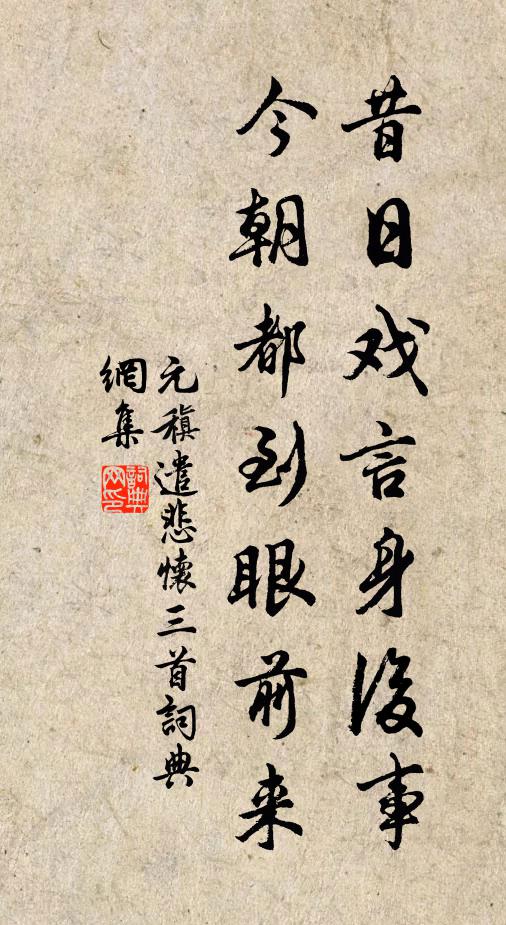 昔日戏言身後事
今朝都到眼前来
元稹遣悲懷三首詞典
網集
詞典
网印